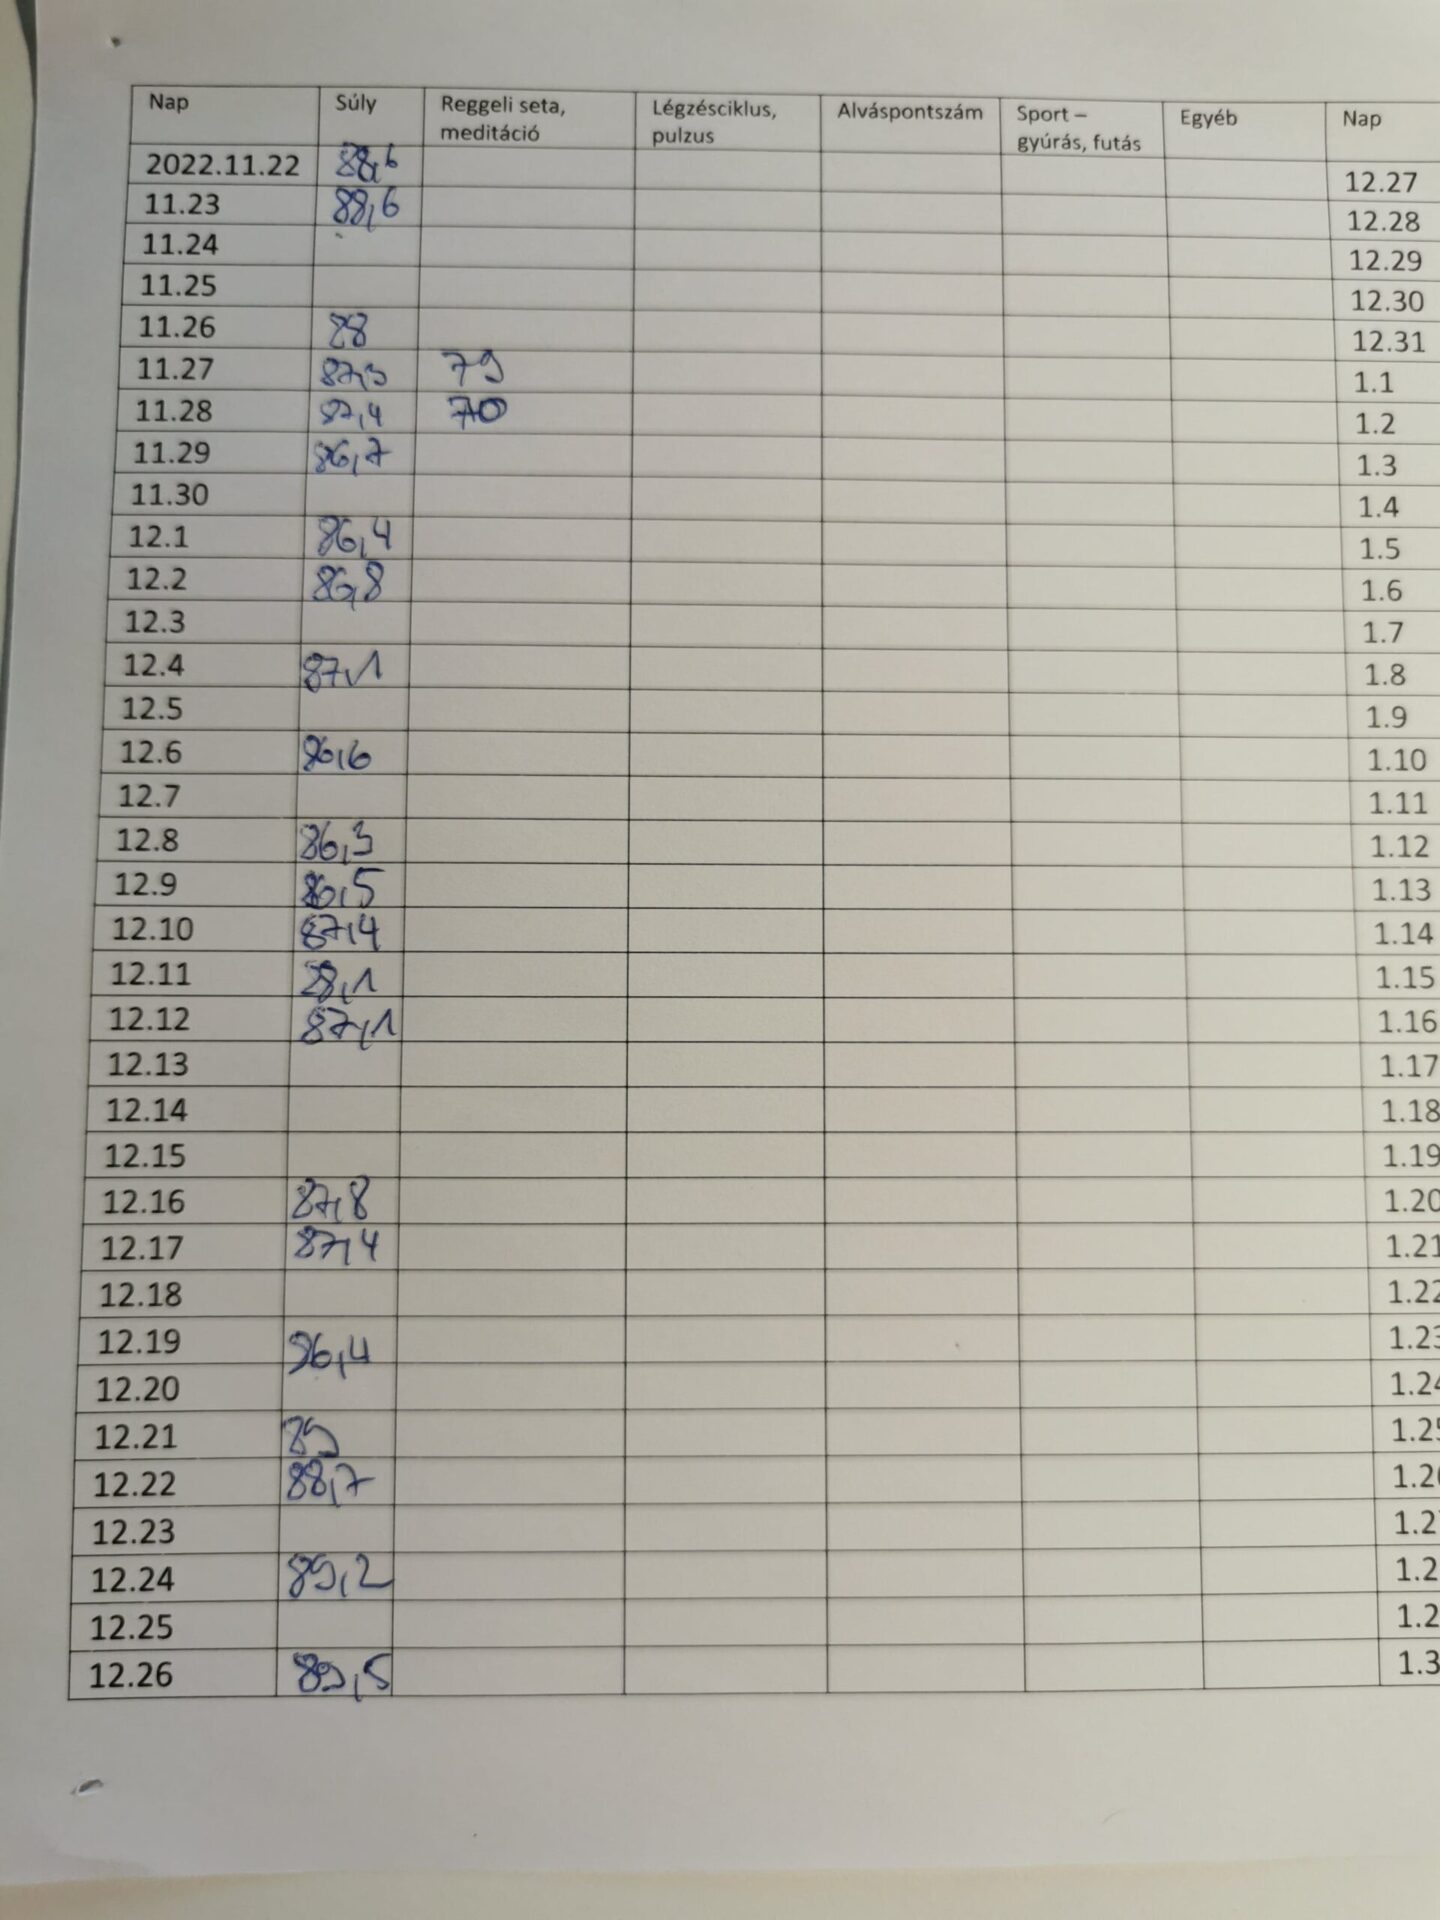 Nap Súly Reggeli seta, meditáció Légzésciklus, pulzus Alváspontszám Sport – gyúrás, futás Egyéb Nap
2022.11.22 88,6 12.27
11.23 88,6 12.28
11.24 12.29
11.25 12.30
11.26 88 12.31
11.27 87,3 79 1.1
11.28 87,4 70 1.2
11.29 86,7 1.3
11.30 1.4
12.1 86,4 1.5
12.2 86,8 1.6
12.3 1.7
12.4 87,1 1.8
12.5 1.9
12.6 86,6 1.10
12.7 1.11
12.8 86,3 1.12
12.9 86,5 1.13
12.10 87,4 1.14
12.11 88,1 1.15
12.12 87,1 1.16
12.13 1.17
12.14 1.18
12.15 1.19
12.16 87,8 1.20
12.17 87,4 1.21
12.18 1.22
12.19 86,4 1.23
12.20 1.24
12.21 89 1.25
12.22 88,7
12.23
12.24 89,2
12.25
12.26 89,5